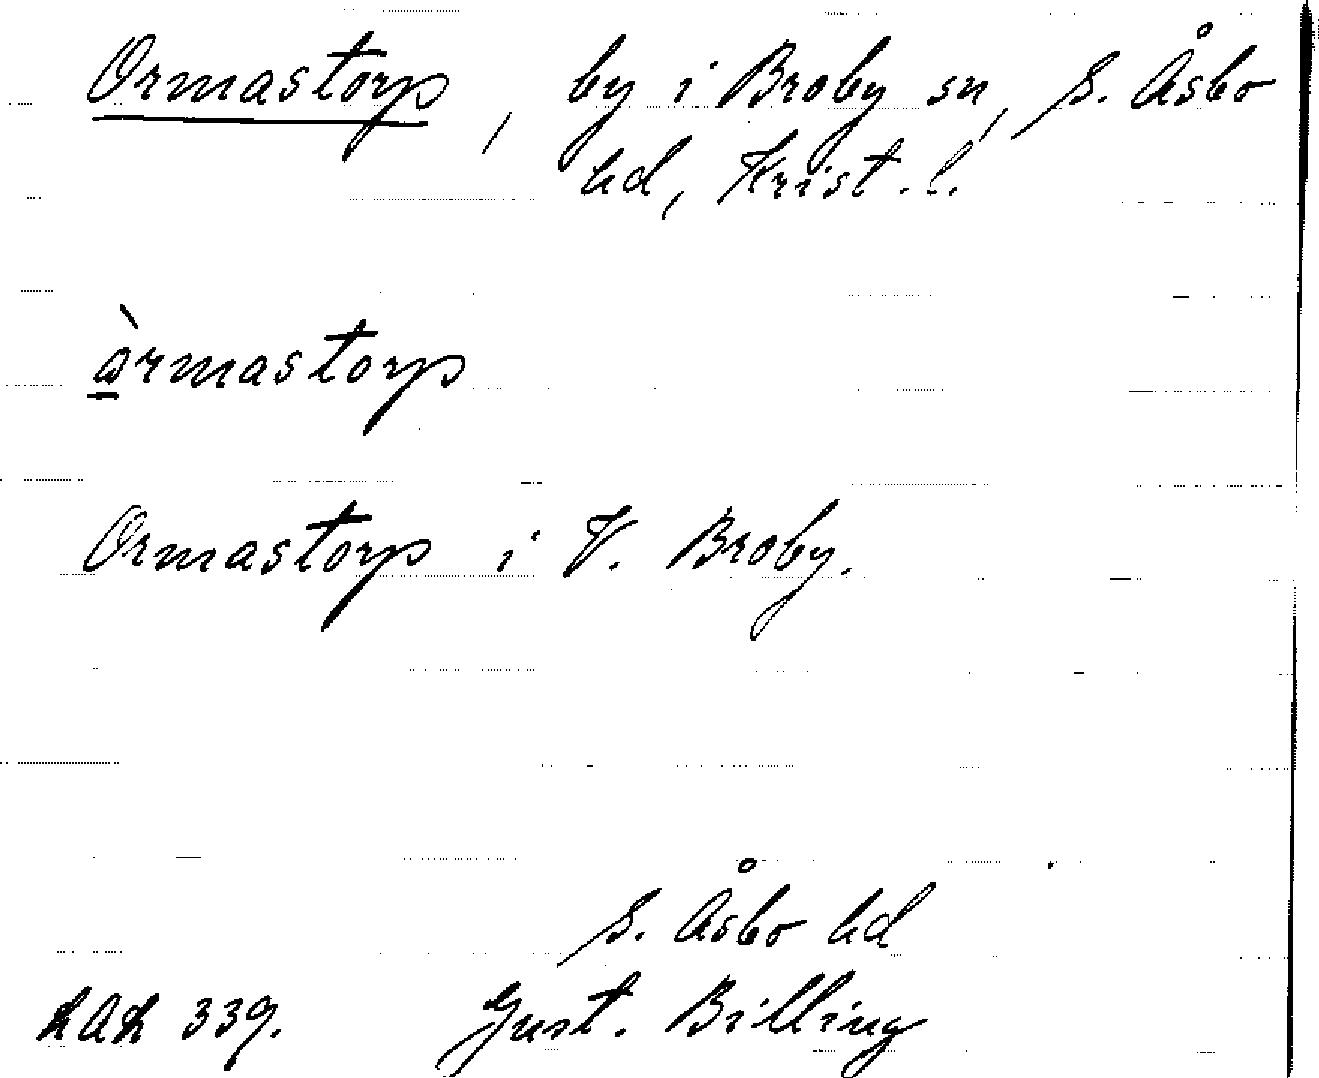 Ormastorp, by i Broby sn, S. Åsbo
hd, Krist. l.
àrmastorp
Ormastorp i V. Broby.
S. Åsbo hd
LAL 339. Gust. Billing